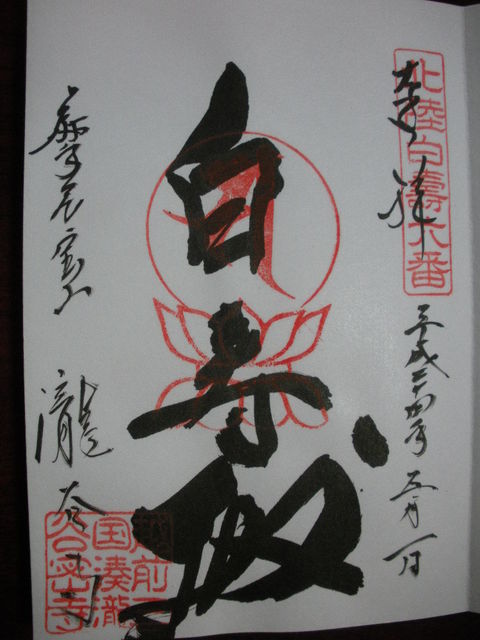 北陸白寿六番
奉拝
平成二十四年五月一日
白寿殿
摩尼宝山
瀧谷寺
越前三
国湊瀧
谷寺